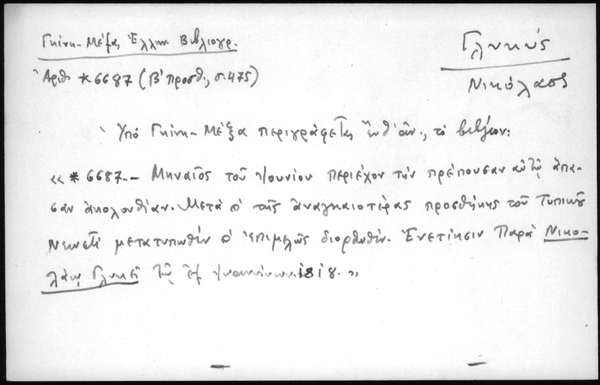 Γκίνη-Μέξα, Ἑλλην. Βιβλιογρ.
Γλυκύς
Ἀριθ. *6687 (Β' προσθ., σ. 475)
Νικόλαος
Ὑπὸ Γκίνη-Μέξα περιγράφεται τὸ βιβλίον:
«*6687.- Μηναῖος τοῦ Ἰουνίου περιέχον τὴν πρέπουσαν αὐτῷ ἅπα-
σαν ἀκολουθίαν. Μετὰ τῆς ἀναγκαιοτέρας προσθήκης τοῦ Τυπικοῦ
Νεωστὶ μετατυπωθὲν ἐπιμελῶς διορθωθέν. Ἐνετίησιν Παρὰ Νικο-
λάῳ Γλυκεῖ τῷ ἐξ Ἰωαννίνων. 1818.»